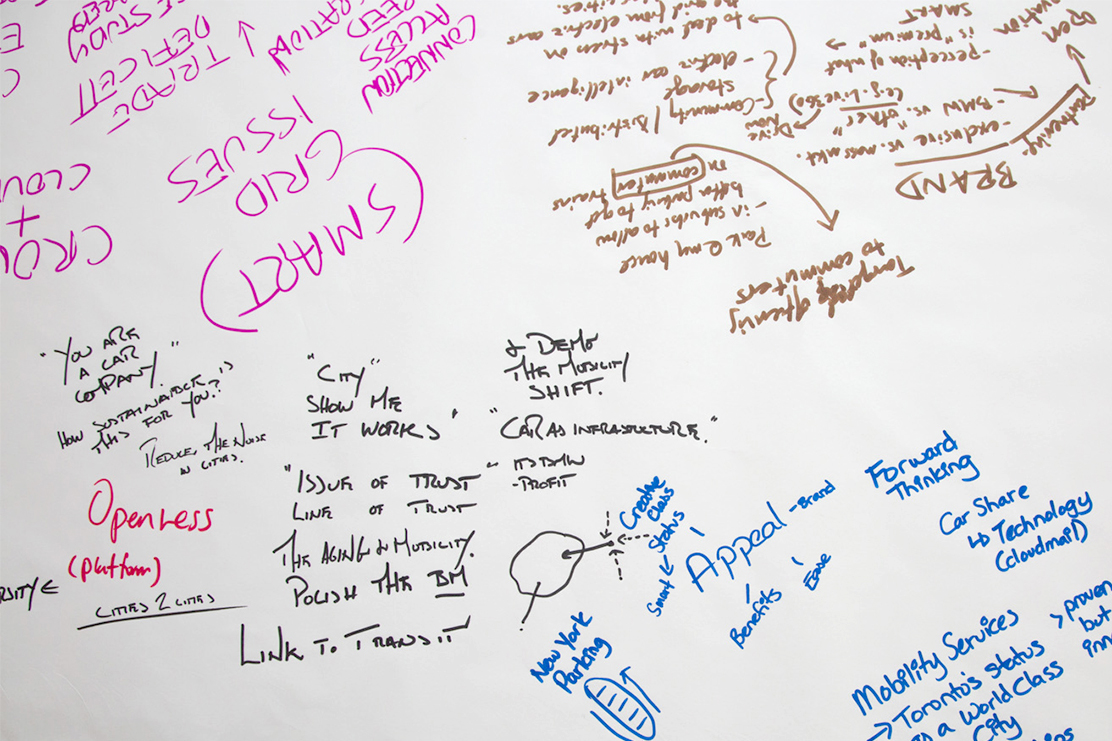 "YOU ARE
A CAR
COMPANY."
HOW SUSTAINABLE IS
THIS FOR YOU?
REDUCE THE NOISE
IN CITIES.
OpenLess
(platform)
CITIES 2 CITIES
"CITY
SHOW ME
IT WORKS"
"ISSUE OF TRUST"
LINE OF TRUST
THE AGING IN MOBILITY.
POLISH THE BM
LINK TO TRANSIT
& DEMO
THE MOBILITY
SHIFT.
"CAR AS INFRASTRUCTURE."
ITS BMW
-PROFIT
Creative
Class
Status
Smart ←
Appeal - Brand
Benefits
Ease
New York
Parking
Forward
Thinking
Car Share
↳ Technology
(cloudmail)
Mobility Services
→ Toronto's status
as a World Class
City
> proven
but
(SMART)
GRID
ISSUES
TRADE
DEFICIT
STUDY
CONNECTION
ACCESS
+
CLOU
BRAND
- exclusive vs. mass mkt.
- BMW vs. "other"
(e.g. Live360)
- perception of what
is "premium" →
SMART
partnering
open
Park @ my house
- in suburbs to allow
better parking to get
on commuter trains
Drive
Now
- Community / Distributed
storage
- electric car intelligence
to deal with stress on
grid from electric cars
to commuters